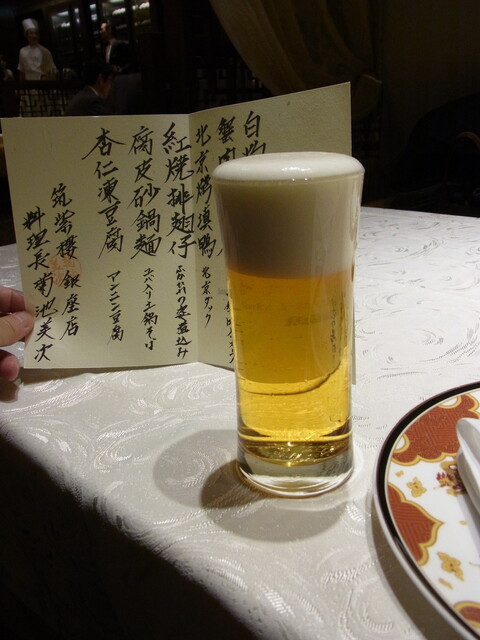 白
蟹肉
北京烤填鴨 北京ダック
紅焼排翅仔 ふかひれの姿煮込み
腐皮砂鍋麺 土鍋そば
杏仁凍豆腐 アンニン豆腐
筑紫樓 銀座店
料理長 菊池美次